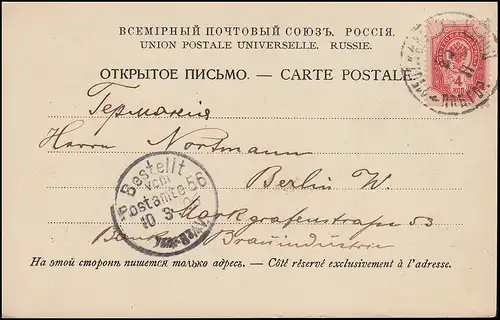 ВСЕМІРНЫЙ ПОЧТОВЫЙ СОЮЗЪ. РОССІЯ.
UNION POSTALE UNIVERSELLE. RUSSIE.
ОТКРЫТОЕ ПИСЬМО. — CARTE POSTALE.
4
КОП
Германія
Herrn Nortmann
Berlin W.
Markgrafenstrasse 53
Brauindustrie
Bestellt
vom
Postamte 56
10. 3.
На этой сторонѣ пишется только адресъ. — Côté réservé exclusivement à l'adresse.